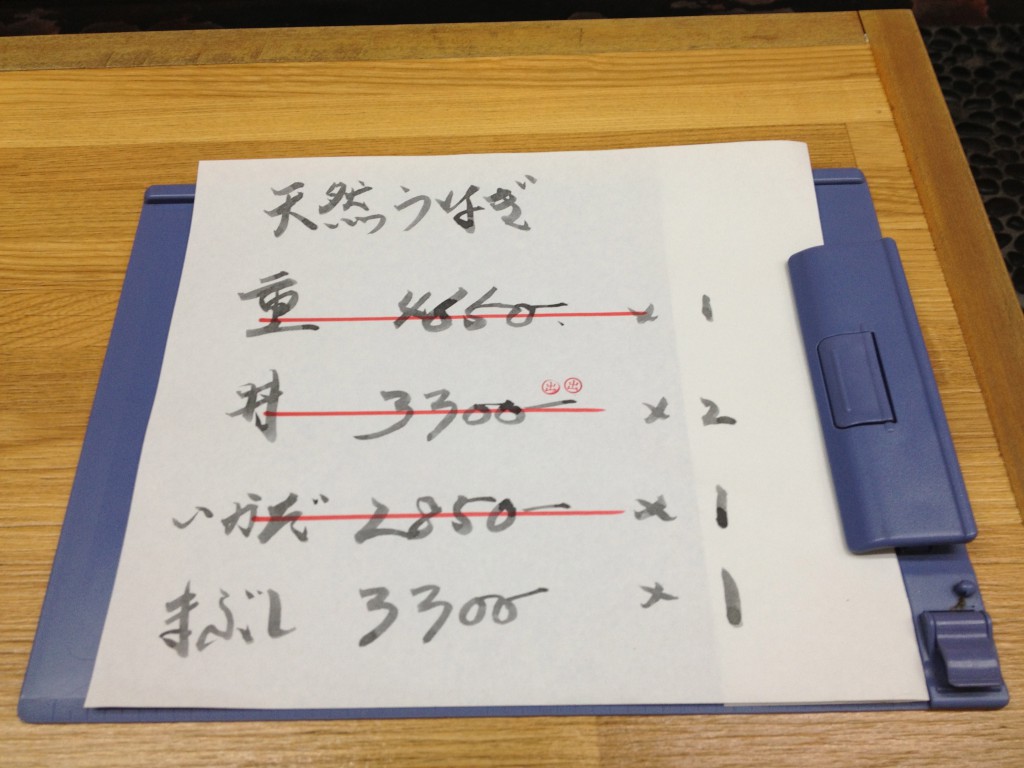 天然うなぎ
重 4650- × 1
丼 3300- 出 出 × 2
いかだ 2850- × 1
まぶし 3300- × 1